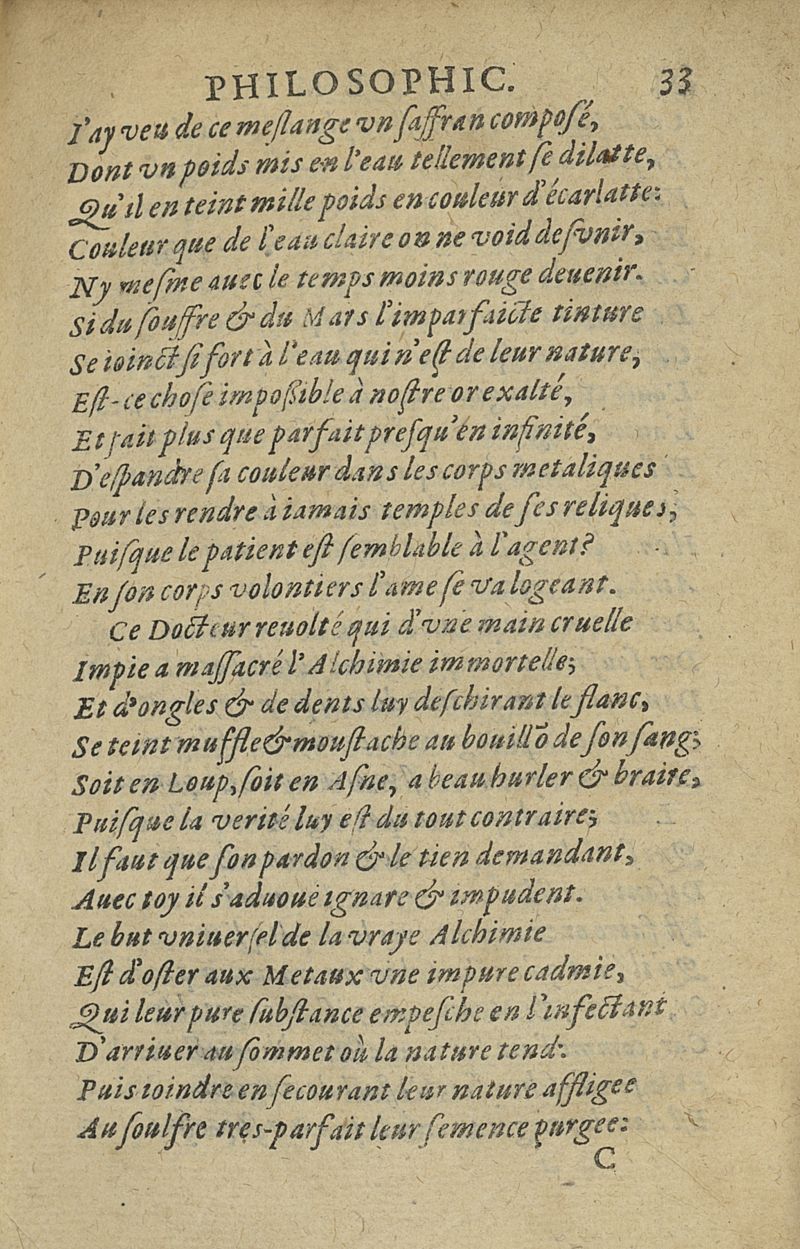 PHILOSOPHIC. 33
I'ay veu de ce meſlange vn ſaffran compoſé,
Dont vn poids mis en l'eau tellement ſe dilatte,
Qu'il en teint mille poids en couleur d'écarlatte:
Couleur que de l'eau claire on ne void deſvnir,
Ny meſme auec le temps moins rouge deuenir.
Si du ſouffre & du Mars l'imparfaicte tinture
Se ioinct ſi fort à l'eau qui n'eſt de leur nature,
Eſt-ce choſe impoßible à noſtre or exalté,
Et fait plus que parfait preſqu'en infinité,
D'eſpandre ſa couleur dans les corps metaliques
Pour les rendre à iamais temples de ſes reliques,
Puiſque le patient eſt ſemblable à l'agent?
En ſon corps volontiers l'ame ſe va logeant.
Ce Docteur reuolté qui d'vne main cruelle
Impie a maſſacré l'Alchimie immortelle;
Et d'ongles & de dents luy deſchirant le flanc,
Se teint muffle & mouſtache au bouillõ de ſon ſang;
Soit en Loup, ſoit en Aſne, a beau hurler & braire,
Puiſque la verité luy eſt du tout contraire;
Il faut que ſon pardon & le tien demandant,
Auec toy il s'aduouë ignare & impudent.
Le but vniuerſel de la vraye Alchimie
Eſt d'oſter aux Metaux vne impure cadmie,
Qui leur pure ſubſtance empeſche en l'infectant
D'arriuer au ſommet où la nature tend:
Puis ioindre en ſecourant leur nature affligee
Au ſoulfre tres-parfait leur ſemence purgee:
C